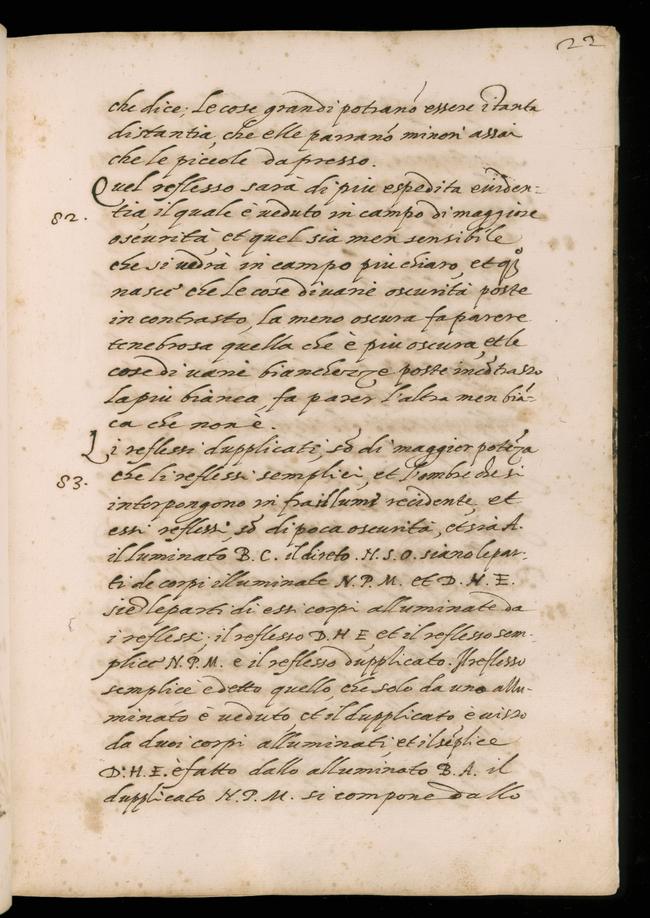 22
che dice; Le cose grandi potrano essere ĩ tanta
distantia, che elle parrano minori assai
che le piccole da presso.
Quel reflesso sarà di piu espedita euiden=
82. tia il quale è ueduto in campo di maggiore
oscurità et quel sia men sensibile
che si uedrà in campo piu chiaro, et
nasce che le cose di uarie oscurità poste
in contrasto, la meno oscura fa parere
tenebrosa quella che è piu oscura, et le
cose di uarie bianchezze poste in cõtrasto
la piu bianca fa parer l'altra men biã=
ca che non è.
Li reflessi dupplicati sõ di maggior potẽza
83. che li reflessi semplici, et l'ombre che si
interpongono in fra illumi recidente, et
essi reflessi sõ di poca oscurità, et sia A.
illuminato B. C. il direto. N. S. O. siano le par-
ti de corpi illuminate N. P. M. et D. H. E.
sie le parti di essi corpi alluminate da
i reflessi; il reflesso D. H E et il reflesso sem-
plice N. P. M. è il reflesso dupplicato. Il reflesso
semplice è detto quello, che solo da uno allu-
minato è ueduto, et il dupplicato è uisto
da duoi corpi alluminati et il sẽplice
D. H. E. è fatto dallo alluminato B. A. il
dupplicato N. P. M. si compone dallo